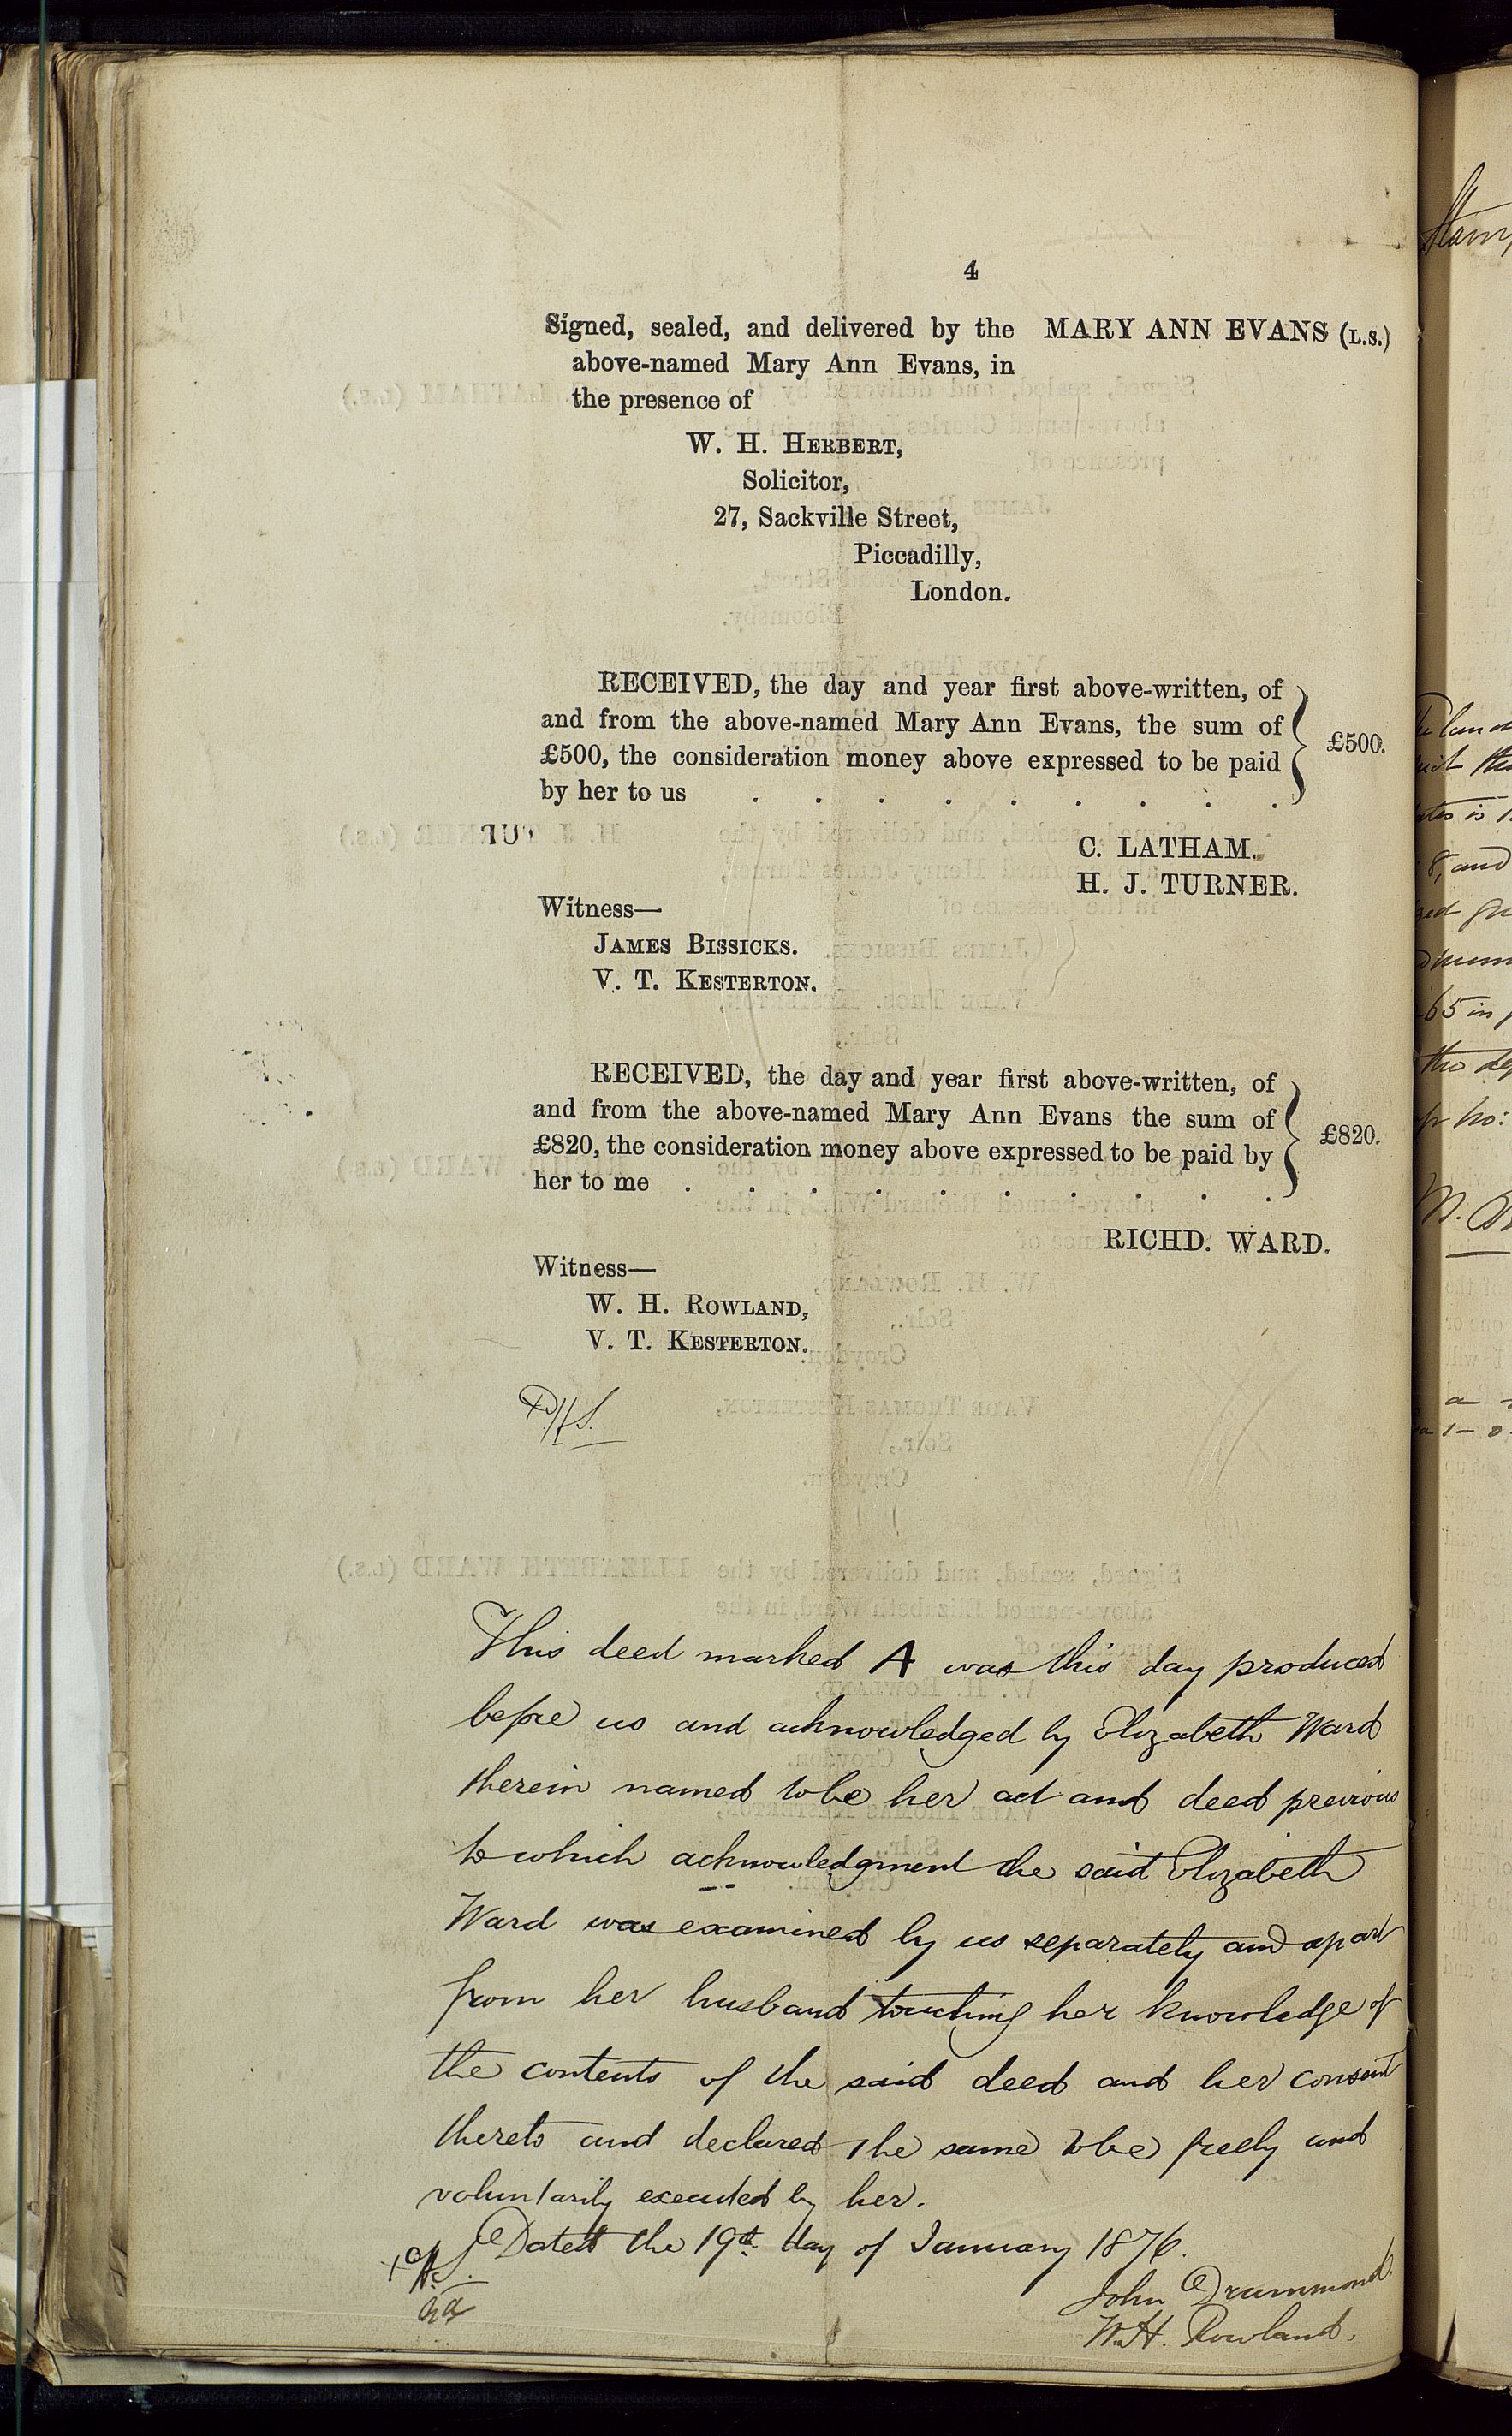 4
Signed, sealed, and delivered by the MARY ANN EVANS (L.S.)
above-named Mary Ann Evans, in
the presence of
W. H. HERBERT,
Solicitor,
27, Sackville Street,
Piccadilly,
London.
RECEIVED, the day and year first above-written, of
and from the above-named Mary Ann Evans, the sum of
£500, the consideration money above expressed to be paid
by her to us . . . . . . . . .
£500.
C. LATHAM.
H. J. TURNER.
Witness—
JAMES BISSICKS.
V. T. KESTERTON.
RECEIVED, the day and year first above-written, of
and from the above-named Mary Ann Evans the sum of
£820, the consideration money above expressed to be paid by
her to me . . . . . . . . . .
£820.
RICHD. WARD.
Witness—
W. H. ROWLAND,
V. T. KESTERTON.
This deed marked A was this day produced
before us and acknowledged by Elizabeth Ward
therein named to be her act and deed previous
to which acknowledgment the said Elizabeth
Ward was examined by us separately and apart
from her husband touching her knowledge of
the contents of the said deed and her consent
thereto and declared the same to be freely and
voluntarily executed by her.
Dated the 19th day of January 1876.
John Drummond.
W. H. Rowland.